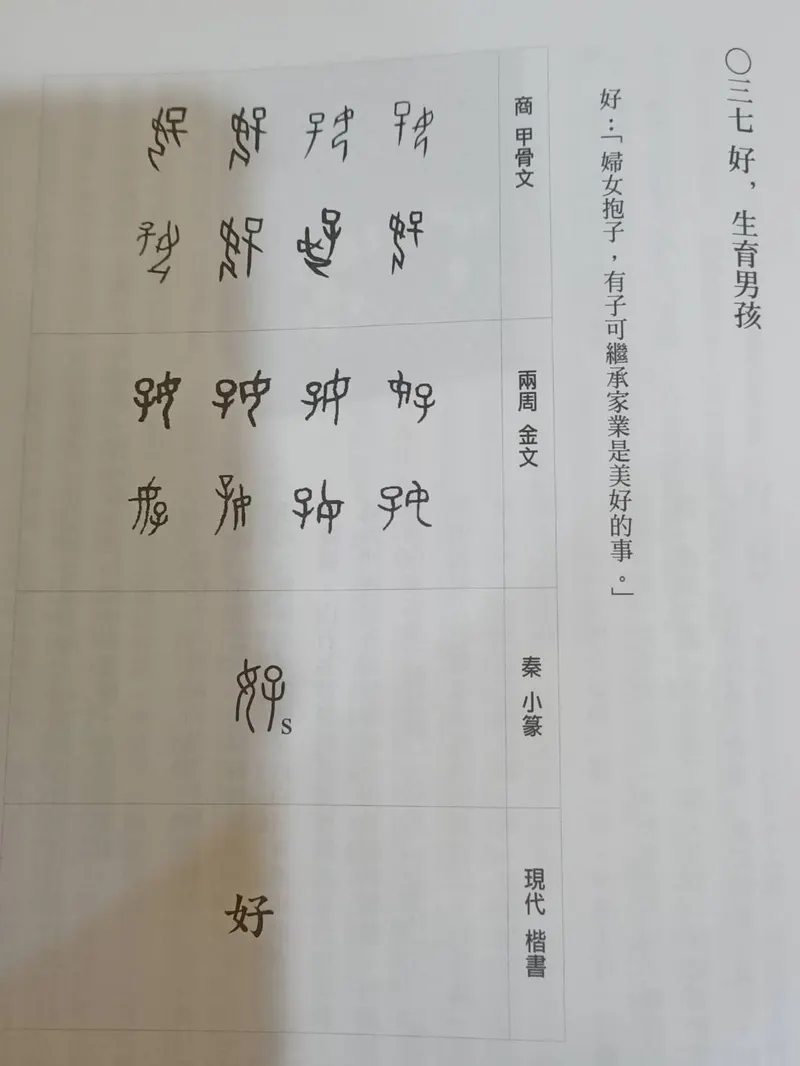 〇三七 好，生育男孩
好：「婦女抱子，有子可繼承家業是美好的事。」
商 甲骨文
兩周 金文
秦 小篆
好s
現代 楷書
好